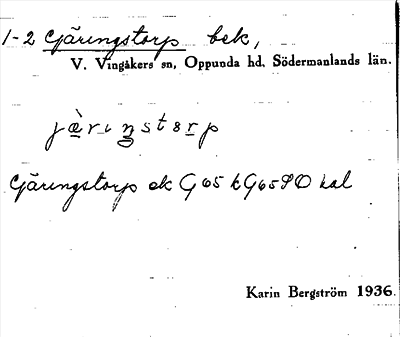 1-2 Gäringstorp bek,
V. Vingåkers sn, Oppunda hd, Södermanlands län.
jæ̀riŋstɵrp
Gäringstorp ek G 65 kG65 PO kal
Karin Bergström 1936.